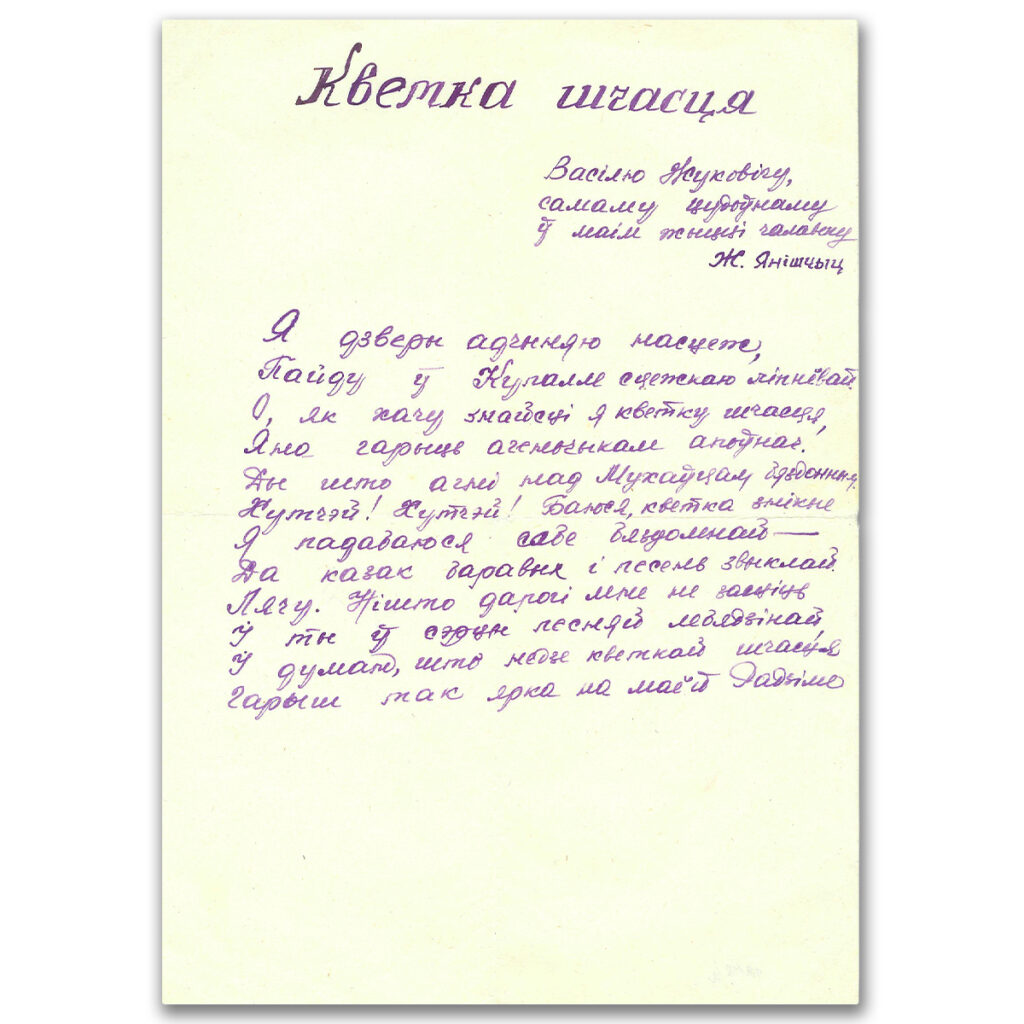 Кветка шчасця
Васілю Жуковічу,
самаму цудоўнаму
ў маім жыцці чалавеку
Ж. Янішчыц
Я дзверы адчыняю насцеж,
Пайду ў Купалле сцежкаю ліпнёвай.
О, як хачу знайсці я кветку шчасця,
Яна гарыць агеньчыкам апоўнач!
Ды што агні над Мухаўцам
Хутчэй! Хутчэй! Баюся, кветка знікне
Я падаваюся сабе бяздомнай —
Да казак баравых і песень звыклай.
Лячу. Нішто дарогі мне не засціць
І ты ў сэрцы песняй лебядзінай,
І думаю, што недзе кветкай шчасця
Гарыш так ярка на маёй Радзіме